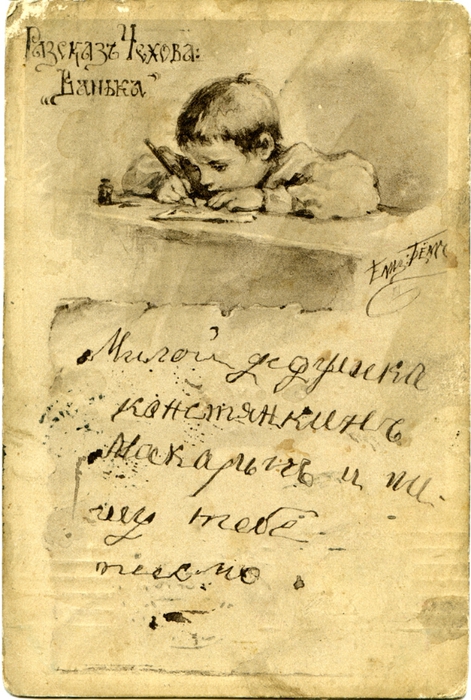 Разсказъ Чехова:
„Ванька"
Елиз: Бёмъ
Милой дедушка
констянкинъ
Макарычъ и пи-
шу тебе
письмо.